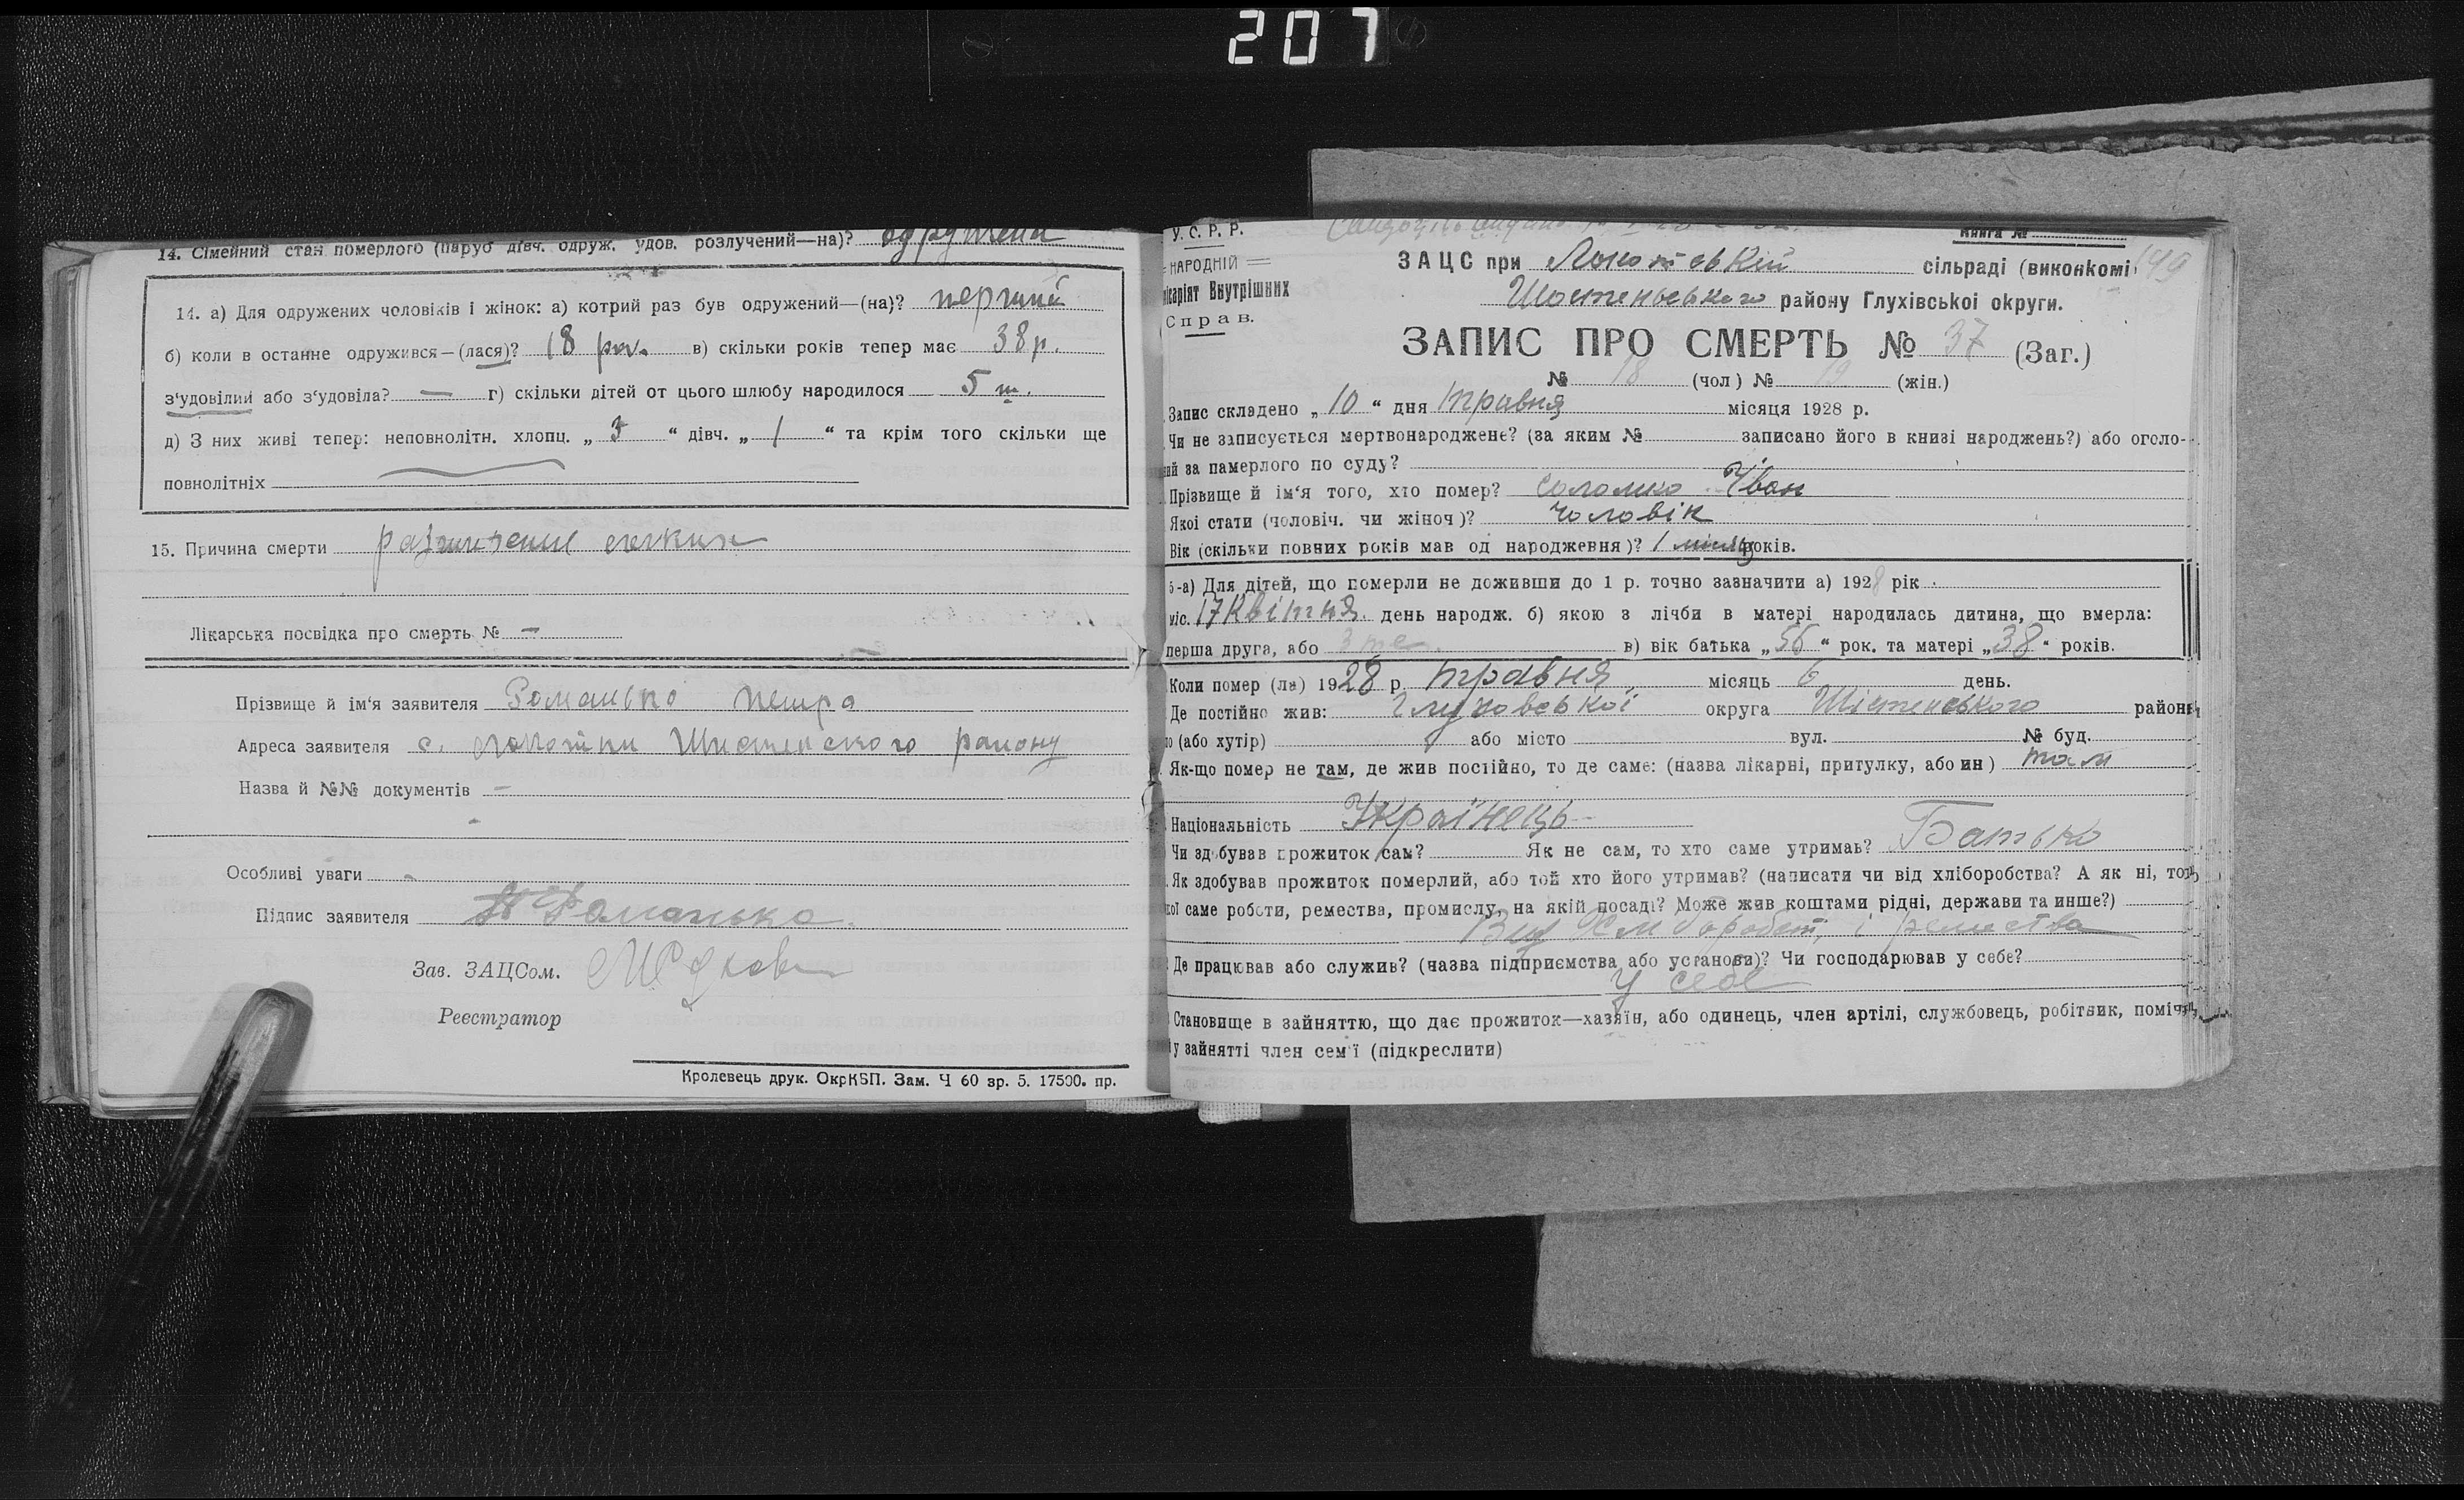 207
14. Сімейний стан померлого (паруб дівч. одруж. удов. розлучений—на)? одружена
14. а) Для одружених чоловіків і жінок: а) котрий раз був одружений—(на)? перший
б) коли в останнє одружився—(лася)? 18 рок. в) скільки років тепер має 38 р.
з‘удовілий або з‘удовіла? — г) скільки дітей от цього шлюбу народилося 5 т.
д) З них живі тепер: неповнолітн. хлопц. „ 3 “ дівч. „ 1 “ та крім того скільки ще
повнолітніх
15. Причина смерти
Лікарська посвідка про смерть № —
Прізвище й ім‘я заявителя Романько Петра
Адреса заявителя с. Локотки Шостенского району
Назва й №№ документів —
Особливі уваги -
Підпис заявителя Романько
Зав. ЗАЦСом.
Реєстратор
Кролевець друк. ОкрКБП. Зам. Ч 60 зр. 5. 17500. пр.
У. С. Р. Р.
Книга №
НАРОДНІЙ
ЗАЦС при Локотській сільраді (виконкомі) 149
Внутрішніх
Шостенського району Глухівської округи.
Справ.
ЗАПИС ПРО СМЕРТЬ № 37 (Заг.)
№ 18 (чол) № 19 (жін.)
Запис складено „ 10 “ дня травня місяця 1928 р.
Чи не записується мертвонароджене? (за яким № записано його в книзі народжень?) або оголо-
за памерлого по суду?
Прізвище й ім‘я того, хто помер? Соломко Іван
Якої стати (чоловіч. чи жіноч)? чоловік
Вік (скільки повних років мав од народження)? 1 місяц років.
5-а) Для дітей, що померли не доживши до 1 р. точно зазначити а) 1928 рік
міс. 17 Квітня день народж. б) якою з лічби в матері народилась дитина, що вмерла:
перша друга, або в) вік батька „56“ рок. та матері „38“ років.
Коли помер (ла) 1928 р. травня місяць 6 день.
Де постійно жив: Глуховської округа Шостенського район
(або хутір) або місто вул. № буд.
Як-що помер не там, де жив постійно, то де саме: (назва лікарні, притулку, або ин) там
Національність Українець
Чи здобував прожиток сам? Як не сам, то хто саме утримав? Батько
Як здобував прожиток померлий, або той хто його утримав? (написати чи від хліборобства? А як ні, то
саме роботи, ремества, промислу, на якій посаді? Може жив коштами рідні, держави та инше?)
Від Хлібороб і ремества
Де працював або служив? (назва підприємства або установи)? Чи господарював у себе?
У себе
Становище в зайняттю, що дає прожиток—хазяїн, або одинець, член артілі, службовець, робітник, поміч
у зайнятті член сем‘ї (підкреслити)